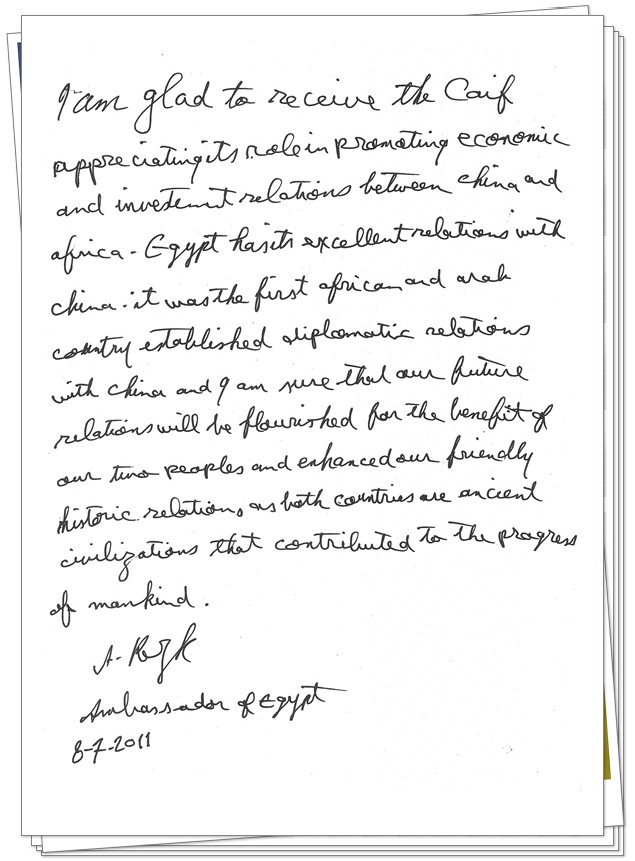 I am glad to receive the Caif
appreciating its role in promoting economic
and investemnt relations between china and
africa. Egypt has its excellent relations with
china. it was the first african and arab
country established diplomatic relations
with china and I am sure that our future
relations will be flourished for the benefit of
our two peoples and enhanced our friendly
historic relation, as both countries are ancient
civilizations that contributed to the progress
of mankind.
A. Rizk
Ambassador of Egypt
8-7-2011